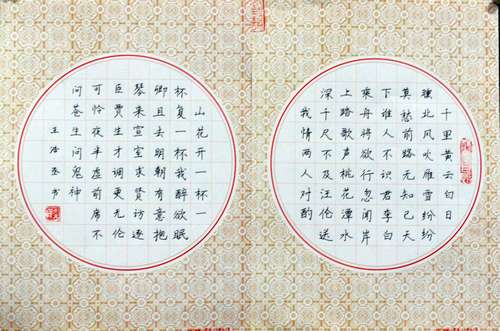 千里黄云白日
曛北风吹雁雪纷纷
莫愁前路无知己天
下谁人不识君李白
乘舟将欲行忽闻岸
上踏歌声桃花潭水
深千尺不及汪伦送
我情两人对酌
山花开一杯一
杯复一杯我醉欲眠
卿且去明朝有意抱
琴来宣室求贤访逐
臣贾生才调更无伦
可怜夜半虚前席不
问苍生问鬼神
王浩丞书